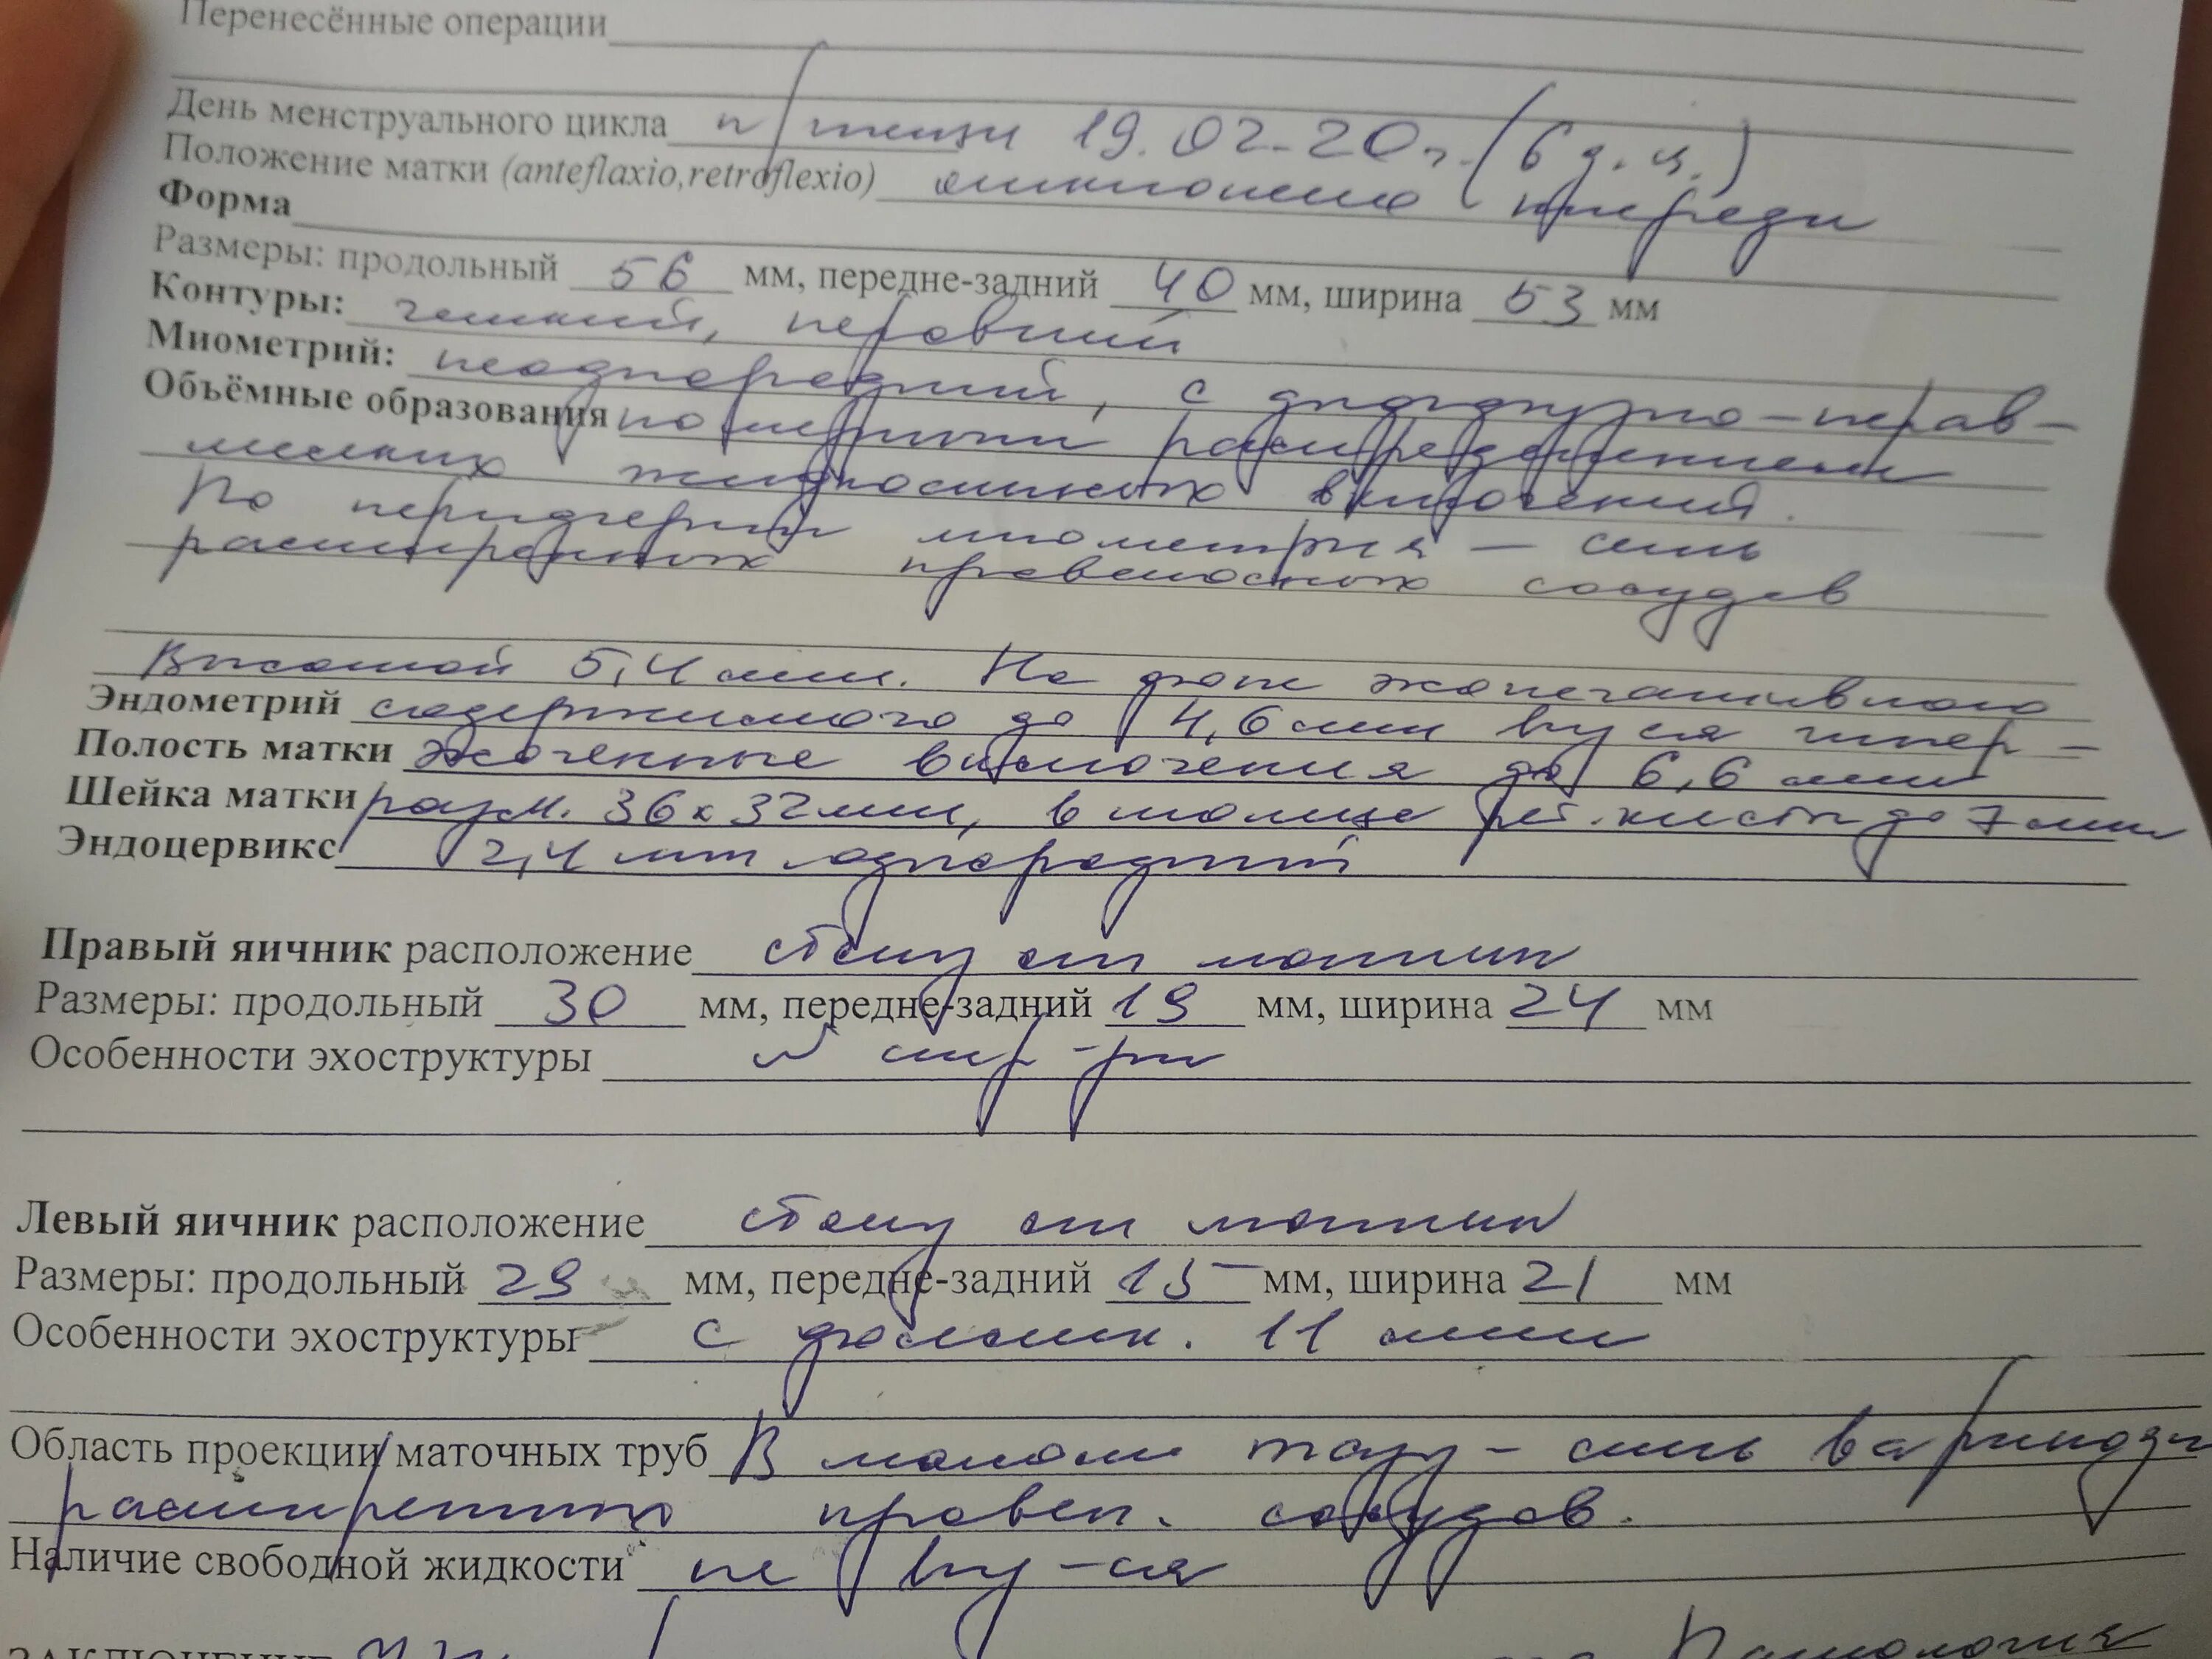 Перенесённые операции
День менструального цикла п/менз 19.02.20г. (6 д.ц.)
Положение матки (anteflaxio,retroflexio) отклонена кпереди
Форма
Размеры: продольный 56 мм, передне-задний 40 мм, ширина 53 мм
Контуры: четкий, неровный
Миометрий: неоднородный, с диффузно-нерав-
Объёмные образования номерным распределением
мелких жидкостных включений.
По периферии миометрия – сеть
расширенных кровеносных сосудов
Высотой 5,4 мм. На фоне эхонегативного
Эндометрий содержимого до 4,6 мм виз-ся гипер-
Полость матки эхогенные включения до 6,6 мм
Шейка матки разм. 36х32мм, в толще рет. кисты до 7 мм
Эндоцервикс 2,4 мм однородный
Правый яичник расположение сбоку от матки
Размеры: продольный 30 мм, передне-задний 19 мм, ширина 24 мм
Особенности эхоструктуры N стр-ры
Левый яичник расположение сбоку от матки
Размеры: продольный 29 мм, передне-задний 15 мм, ширина 21 мм
Особенности эхоструктуры с фоллик. 11 мм
Область проекции маточных труб В малом тазу – сеть варикозно
расширенных кровен. сосудов.
Наличие свободной жидкости не виз-ся
ЗАКЛЮЧЕНИЕ Патология